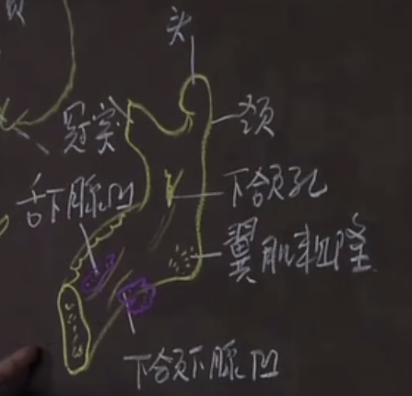 头
冠突
颈
舌下腺凹
下颌孔
翼肌粗隆
下颌下腺凹